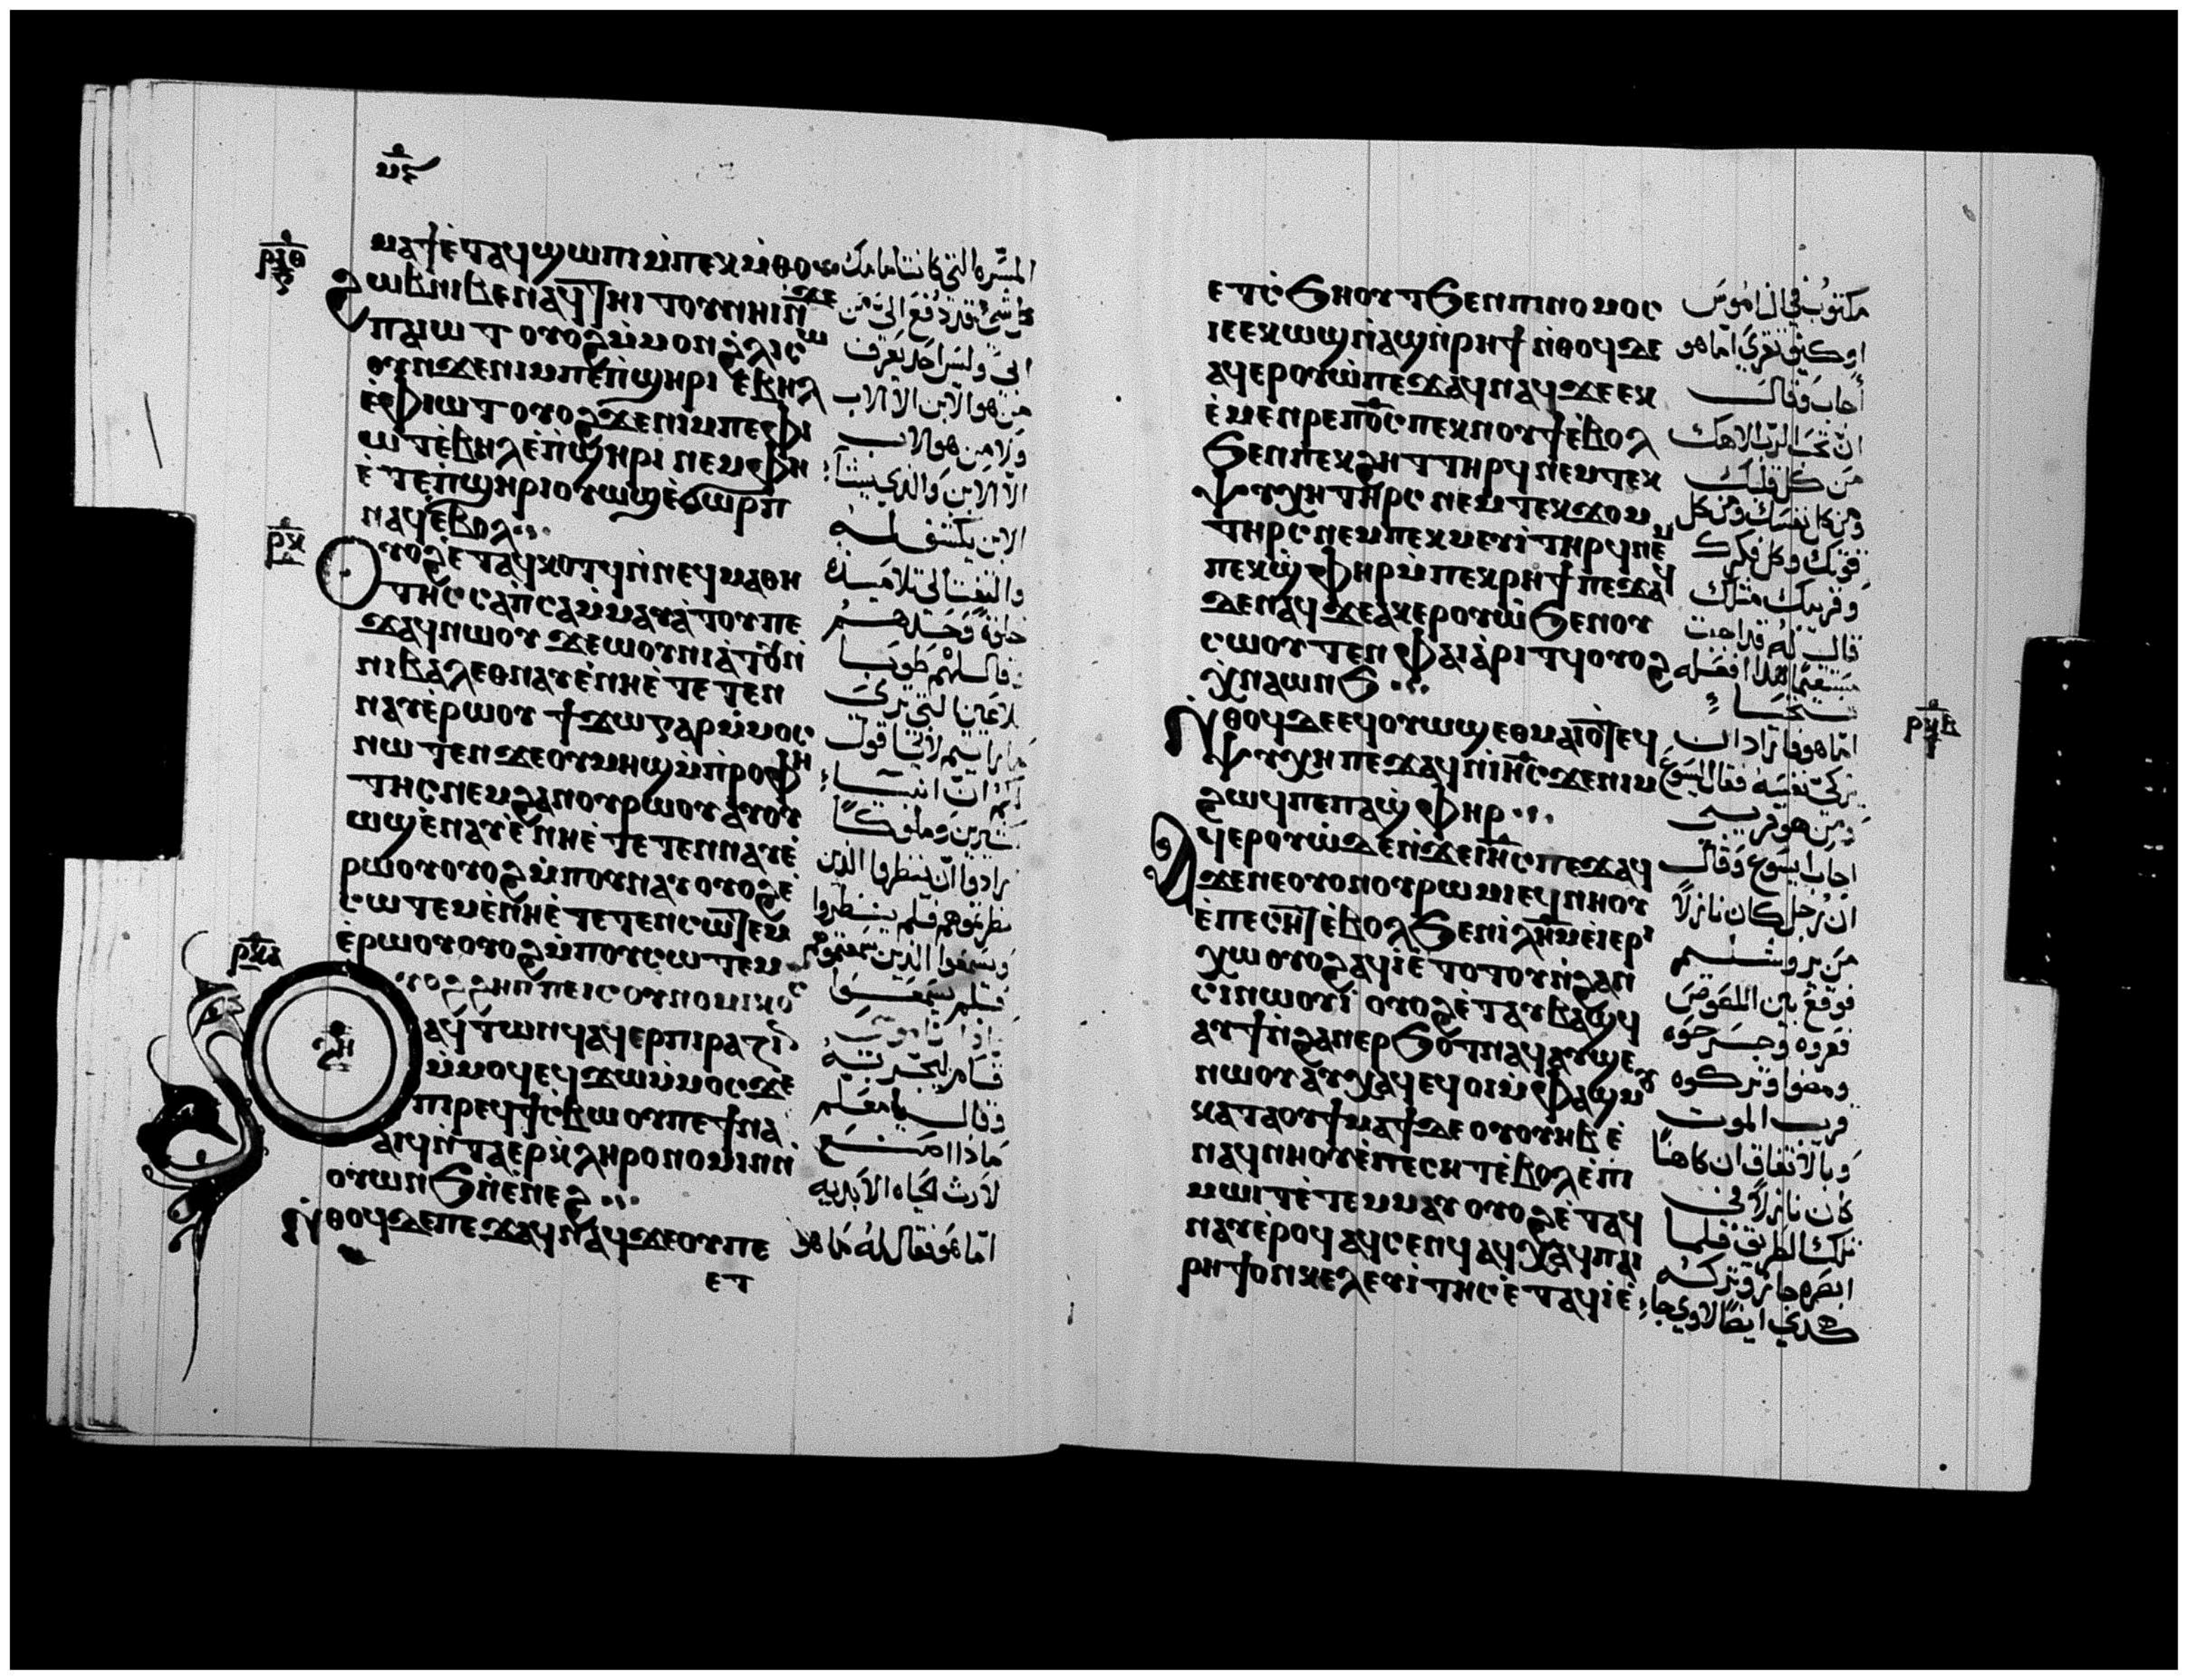 ⲙⲋ
ⲣⲓⲑ
ⲙⲁϯ ⲉ̀ⲧⲁϥϣⲱⲡⲓ ⲙ̀ⲡⲉⲕⲙ̀ⲑⲟ
ϩⲱⲃ ⲛⲓⲃⲉⲛ ⲁⲩⲧⲏⲓⲧⲟⲩ ⲛⲏⲓ ⲛ̀ϫⲉ
ⲡⲁⲓⲱⲧ ⲟⲩⲟϩ ⲙ̀ⲙⲟⲛ ϩⲗⲓ ⲥⲱ
ⲟⲩⲛ ϫⲉ ⲛⲓⲙ ⲡⲉ ⲡ̀ϣⲏⲣⲓ ⲉ̀ⲃⲏⲗ
ⲉ̀ⲫⲓⲱⲧ ⲟⲩⲟϩ ϫⲉ ⲛⲓⲙ ⲡⲉ ⲫⲓ
ⲱⲧ ⲉ̀ⲃⲏⲗ ⲉ̀ⲡ̀ϣⲏⲣⲓ ⲛⲉⲙ ⲫⲏ
ⲉ̀ⲧⲉ ⲡ̀ϣⲏⲣⲓ ⲟⲩⲱϣ ⲉ̀ϭⲱⲣⲡ
ⲛⲁϥ ⲉ̀ⲃⲟⲗ
ⲣⲕ
ⲟⲩⲟϩ ⲉ̀ⲧⲁϥⲕⲟⲧϥ ⲛ̀ⲛⲉϥⲙⲁⲑⲏ
ⲧⲏⲥ ⲥⲁⲡⲥⲁ ⲙ̀ⲙⲁⲩⲁ̀ⲧⲟⲩ ⲡⲉ
ϫⲁϥ ⲛⲱⲟⲩ ϫⲉ ⲱⲟⲩⲛⲓⲁ̀ⲧⲟⲩ ⲛ̀
ⲛⲓⲃⲁⲗ ⲉⲑⲛⲁⲩ ⲉ̀ⲛⲏ ⲉ̀ⲧⲉⲧⲉⲛ
ⲛⲁⲩ ⲉ̀ⲣⲱⲟⲩ ϯϫⲱ ⲅⲁⲣ ⲙ̀ⲙⲟⲥ
ⲛⲱⲧⲉⲛ ϫⲉ ⲟⲩⲙⲏϣ ⲙ̀ⲡ̀ⲣⲟⲫⲏ
ⲧⲏⲥ ⲛⲉⲙ ϩⲁⲛⲟⲩⲣⲱⲟⲩ ⲁⲩⲟⲩ
ⲱϣ ⲉ̀ⲛⲁⲩ ⲉ̀ⲛⲏ ⲉ̀ⲧⲉⲧⲉⲛⲛⲁⲩ ⲉ̀
ⲣⲱⲟⲩ ⲟⲩⲟϩ ⲙ̀ⲡⲟⲩⲛⲁⲩ ⲟⲩⲟϩ ⲉ̀
ⲥⲱⲧⲉⲙ ⲉ̀ⲛⲏ ⲉ̀ⲧⲉⲧⲉⲛⲥⲱⲧⲉⲙ
ⲉ̀ⲣⲱⲟⲩ ⲟⲩⲟϩ ⲙ̀ⲡⲟⲩⲥⲱⲧⲉⲙ
ⲣⲕⲁ
ⲟⲩⲟϩ ϩⲏⲡⲡⲉ ⲓⲥ ⲟⲩⲛⲟⲙⲓⲕⲟⲥ
ⲁϥⲧⲱⲛϥ ⲁϥⲉⲣⲡⲓⲣⲁⲍⲓⲛ
ⲙ̀ⲙⲟϥ ⲉϥϫⲱ ⲙ̀ⲙⲟⲥ ϫⲉ
ⲡⲓⲣⲉϥϯⲥ̀ⲃⲱ ⲟⲩ ⲡⲉ ϯⲛⲁ
ⲁⲓϥ ⲛ̀ⲧⲁⲉⲣⲕ̀ⲗⲏⲣⲟⲛⲟⲙⲓⲛ ⲛ̀
ⲟⲩⲱⲛϧ ⲛ̀ⲉ̀ⲛⲉϩ
ⲛ̀ⲑⲟϥ ϫⲉ ⲡⲉϫⲁϥ ⲛⲁϥ ϫⲉ ⲟⲩ ⲡⲉ
ⲉⲧ
المسره التي كانت امامك
كل شيء قد دفع الي من
ابي وليس احد يعرف
من هو الابن الا الاب
ولا من هو الاب
الا الابن والذي يشا
الابن يكشف له
والتفت الي تلاميذه
خاصة وحدهم
فقال لهم طوبا
للاعين التي تري
ما رايتم لاني اقول
لكم ان انبيا
كثيرين وملوكا
ارادوا ان ينظروا الذين
نظرتموهم فلم ينظروا
ويسمعوا الذين سمعتوهم
فلم يسمعوا
قام ليجربه
وقال يا معلم
ماذا اصنع
لارث الحياه الابديه
اما هو فقال له ما هو
ⲉⲧⲥ̀ϧⲏⲟⲩⲧ ϧⲉⲛ ⲡⲓⲛⲟⲙⲟⲥ
ⲓⲉ ⲉⲕⲱϣ ⲛ̀ⲁϣ ⲛ̀ⲣⲏϯ ⲛ̀ⲑⲟϥ ϫⲉ
ⲁϥⲉⲣⲟⲩⲱ̀ ⲡⲉϫⲁϥ ⲛⲁϥ ϫⲉ ⲉⲕ
ⲉ̀ⲙⲉⲛⲣⲉ ⲡⲟ̅ⲥ̅ ⲡⲉⲕⲛⲟⲩϯ ⲉ̀ⲃⲟⲗ
ϧⲉⲛ ⲡⲉⲕϩⲏⲧ ⲧⲏⲣϥ ⲛⲉⲙ ⲧⲉⲕ
ⲯⲩⲭⲏ ⲧⲏⲣⲥ ⲛⲉⲙ ⲧⲉⲕϫⲟⲙ
ⲧⲏⲣⲥ ⲛⲉⲙ ⲡⲉⲕⲙⲉⲩⲓ ⲧⲏⲣϥ ⲛⲉⲙ
ⲡⲉⲕϣ̀ⲫⲏⲣ ⲙ̀ⲡⲉⲕⲣⲏϯ ⲡⲉϫⲁϥ
ϫⲉ ⲛⲁϥ ϫⲉ ⲁⲕⲉⲣⲟⲩⲱ̀ ϧⲉⲛ ⲟⲩ
ⲥⲱⲟⲩⲧⲉⲛ ⲫⲁⲓ ⲁ̀ⲣⲓⲧϥ ⲟⲩⲟϩ
ⲭ̀ⲛⲁⲱⲛϧ
ⲣⲕⲃ
ⲛ̀ⲑⲟϥ ϫⲉ ⲉϥⲟⲩⲱϣ ⲉⲑⲙⲁⲓⲟⲧⲉϥ
ⲯⲩⲭⲏ ⲡⲉϫⲁϥ ⲛ̀ⲓ̅ⲏ̅ⲥ̅ ϫⲉ ⲛⲓⲙ
ϩⲱϥ ⲡⲉ ⲡⲁϣ̀ⲫⲏⲣ
ⲁϥⲉⲣⲟⲩⲱ̀ ϫⲉ ⲛ̀ϫⲉ ⲓ̅ⲏ̅ⲥ̅ ⲡⲉϫⲁϥ
ϫⲉ ⲛⲉ ⲟⲩⲟⲛ ⲟⲩⲣⲱⲙⲓ ⲉϥⲛⲏⲟⲩ
ⲉ̀ⲡⲉⲥⲏⲧ ⲉ̀ⲃⲟⲗ ϧⲉⲛ ⲓ̅ⲗ̅ⲏ̅ⲙ̅ ⲉ̀ⲓⲉⲣⲓ
ⲭⲱ ⲟⲩⲟϩ ⲁϥⲓ̀ ⲉ̀ⲧⲟⲧⲟⲩ ⲛ̀ϩⲁⲛ
ⲥⲓⲛⲱⲟⲩⲓ̀ ⲟⲩⲟϩ ⲉ̀ⲧⲁⲩⲃⲁϣϥ
ⲁⲩϯ ⲛ̀ϩⲁⲛⲉⲣϧⲟⲧ ⲛⲁϥ ⲁⲩϣⲉ
ⲛⲱⲟⲩ ⲁⲩⲭⲁϥ ⲉϥⲟⲓ ⲙ̀ⲫⲁϣⲙⲟⲩ
ⲕⲁⲧⲁ ⲟⲩϯⲙⲁϯ ϫⲉ ⲟⲩⲟⲩⲏⲃ ⲉ̀
ⲛⲁϥⲛⲏⲟⲩ ⲉ̀ⲡⲉⲥⲏⲧ ⲉ̀ⲃⲟⲗ ⲉ̀ⲡⲓ
ⲙⲱⲓⲧ ⲉ̀ⲧⲉⲙⲙⲁⲩ ⲟⲩⲟϩ ⲉ̀ⲧⲁϥ
ⲛⲁⲩ ⲉ̀ⲣⲟϥ ⲁϥⲥⲉⲛϥ ⲁϥⲭⲁϥ ⲡⲁⲓ
ⲣⲏϯ ⲟⲛ ⲕⲉⲗⲉⲩⲓⲧⲏⲥ ⲉ̀ⲧⲁϥⲓ̀ ⲉ̀
مكتوب في الناموس
او كيف تقري اما هو
أجاب وقال
ان تحب الرب الاهك
من كل قلبك
ومن كل نفسك ومن كل
قوتك وكل فكرك
وقريبك مثلك
قال له قد اجبت
مستقيما هذا افعله
تحيا
اما هو فاراد ان
يزكي نفسه فقال ليسوع
ومن هو قريبي
اجاب ايسوع وقال
ان رجل كان نازلاً
من يروشليم
فوقع بين اللصوص
فعروه وجرحوه
ومضوا وتركوه
قرب الموت
وبالاتفاق ان كاهنًا
كان نازلاً في
تلك الطريق فلما
ابصره جاز وتركه
كذي ايضًا لاوي جا